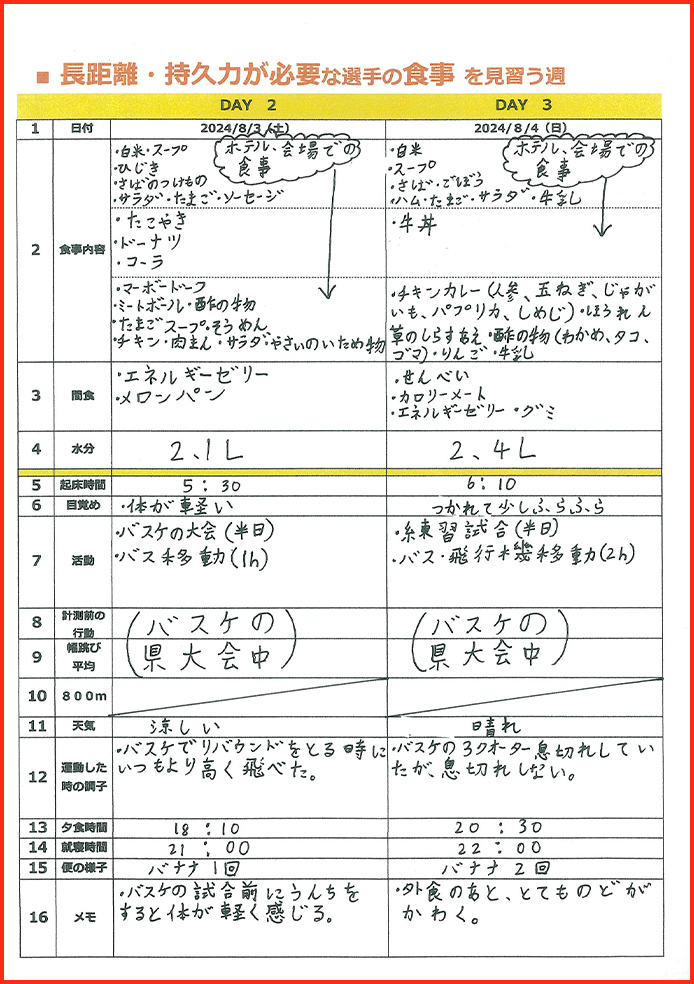 ■ 長距離・持久力が必要な選手の食事 を見習う週
DAY 2 DAY 3
1 日付 2024/8/3(土) 2024/8/4(日)
2 食事内容
・白米・スープ
・ひじき
・さばのつけもの
・サラダ・たまご・ソーセージ
ホテル、会場での
食事
・たこやき
・ドーナツ
・コーラ
・マーボードーフ
・ミートボール・酢の物
・たまごスープ。そうめん
・チキン・肉まん・サラダ・やさいのいため物
・白米
・スープ
・さば・ごぼう
・ハム・たまご・サラダ・牛乳
ホテル、会場での
食事
・牛丼
・チキンカレー(人参、玉ねぎ、じゃが
いも、パプリカ、しめじ)・ほうれん
草のしらすあえ・酢の物(わかめ、タコ、
ゴマ)・りんご・牛乳
3 間食
・エネルギーゼリー
・メロンパン
・せんべい
・カロリーメート
・エネルギーゼリー・グミ
4 水分 2、1L 2、4L
5 起床時間 5:30 6:10
6 目覚め ・体が軽い つかれて少しふらふら
7 活動
・バスケの大会(半日)
・バス移動(1h)
・練習試合(半日)
・バス・飛行機移動(2h)
8 計測前の
行動
9 幅跳び
平均
(バスケの
県大会中)
(バスケの
県大会中)
10 800m
11 天気 涼しい 晴れ
12 運動した
時の調子
・バスケでリバウンドをとる時に
いつもより高く飛べた。
・バスケの3クオーター息切れしてい
たが、息切れしない。
13 夕食時間 18:10 20:30
14 就寝時間 21:00 22:00
15 便の様子 バナナ1回 バナナ2回
16 メモ
・バスケの試合前にうんちを
すると体が軽く感じる。
・外食のあと、とてものどが
かわく。